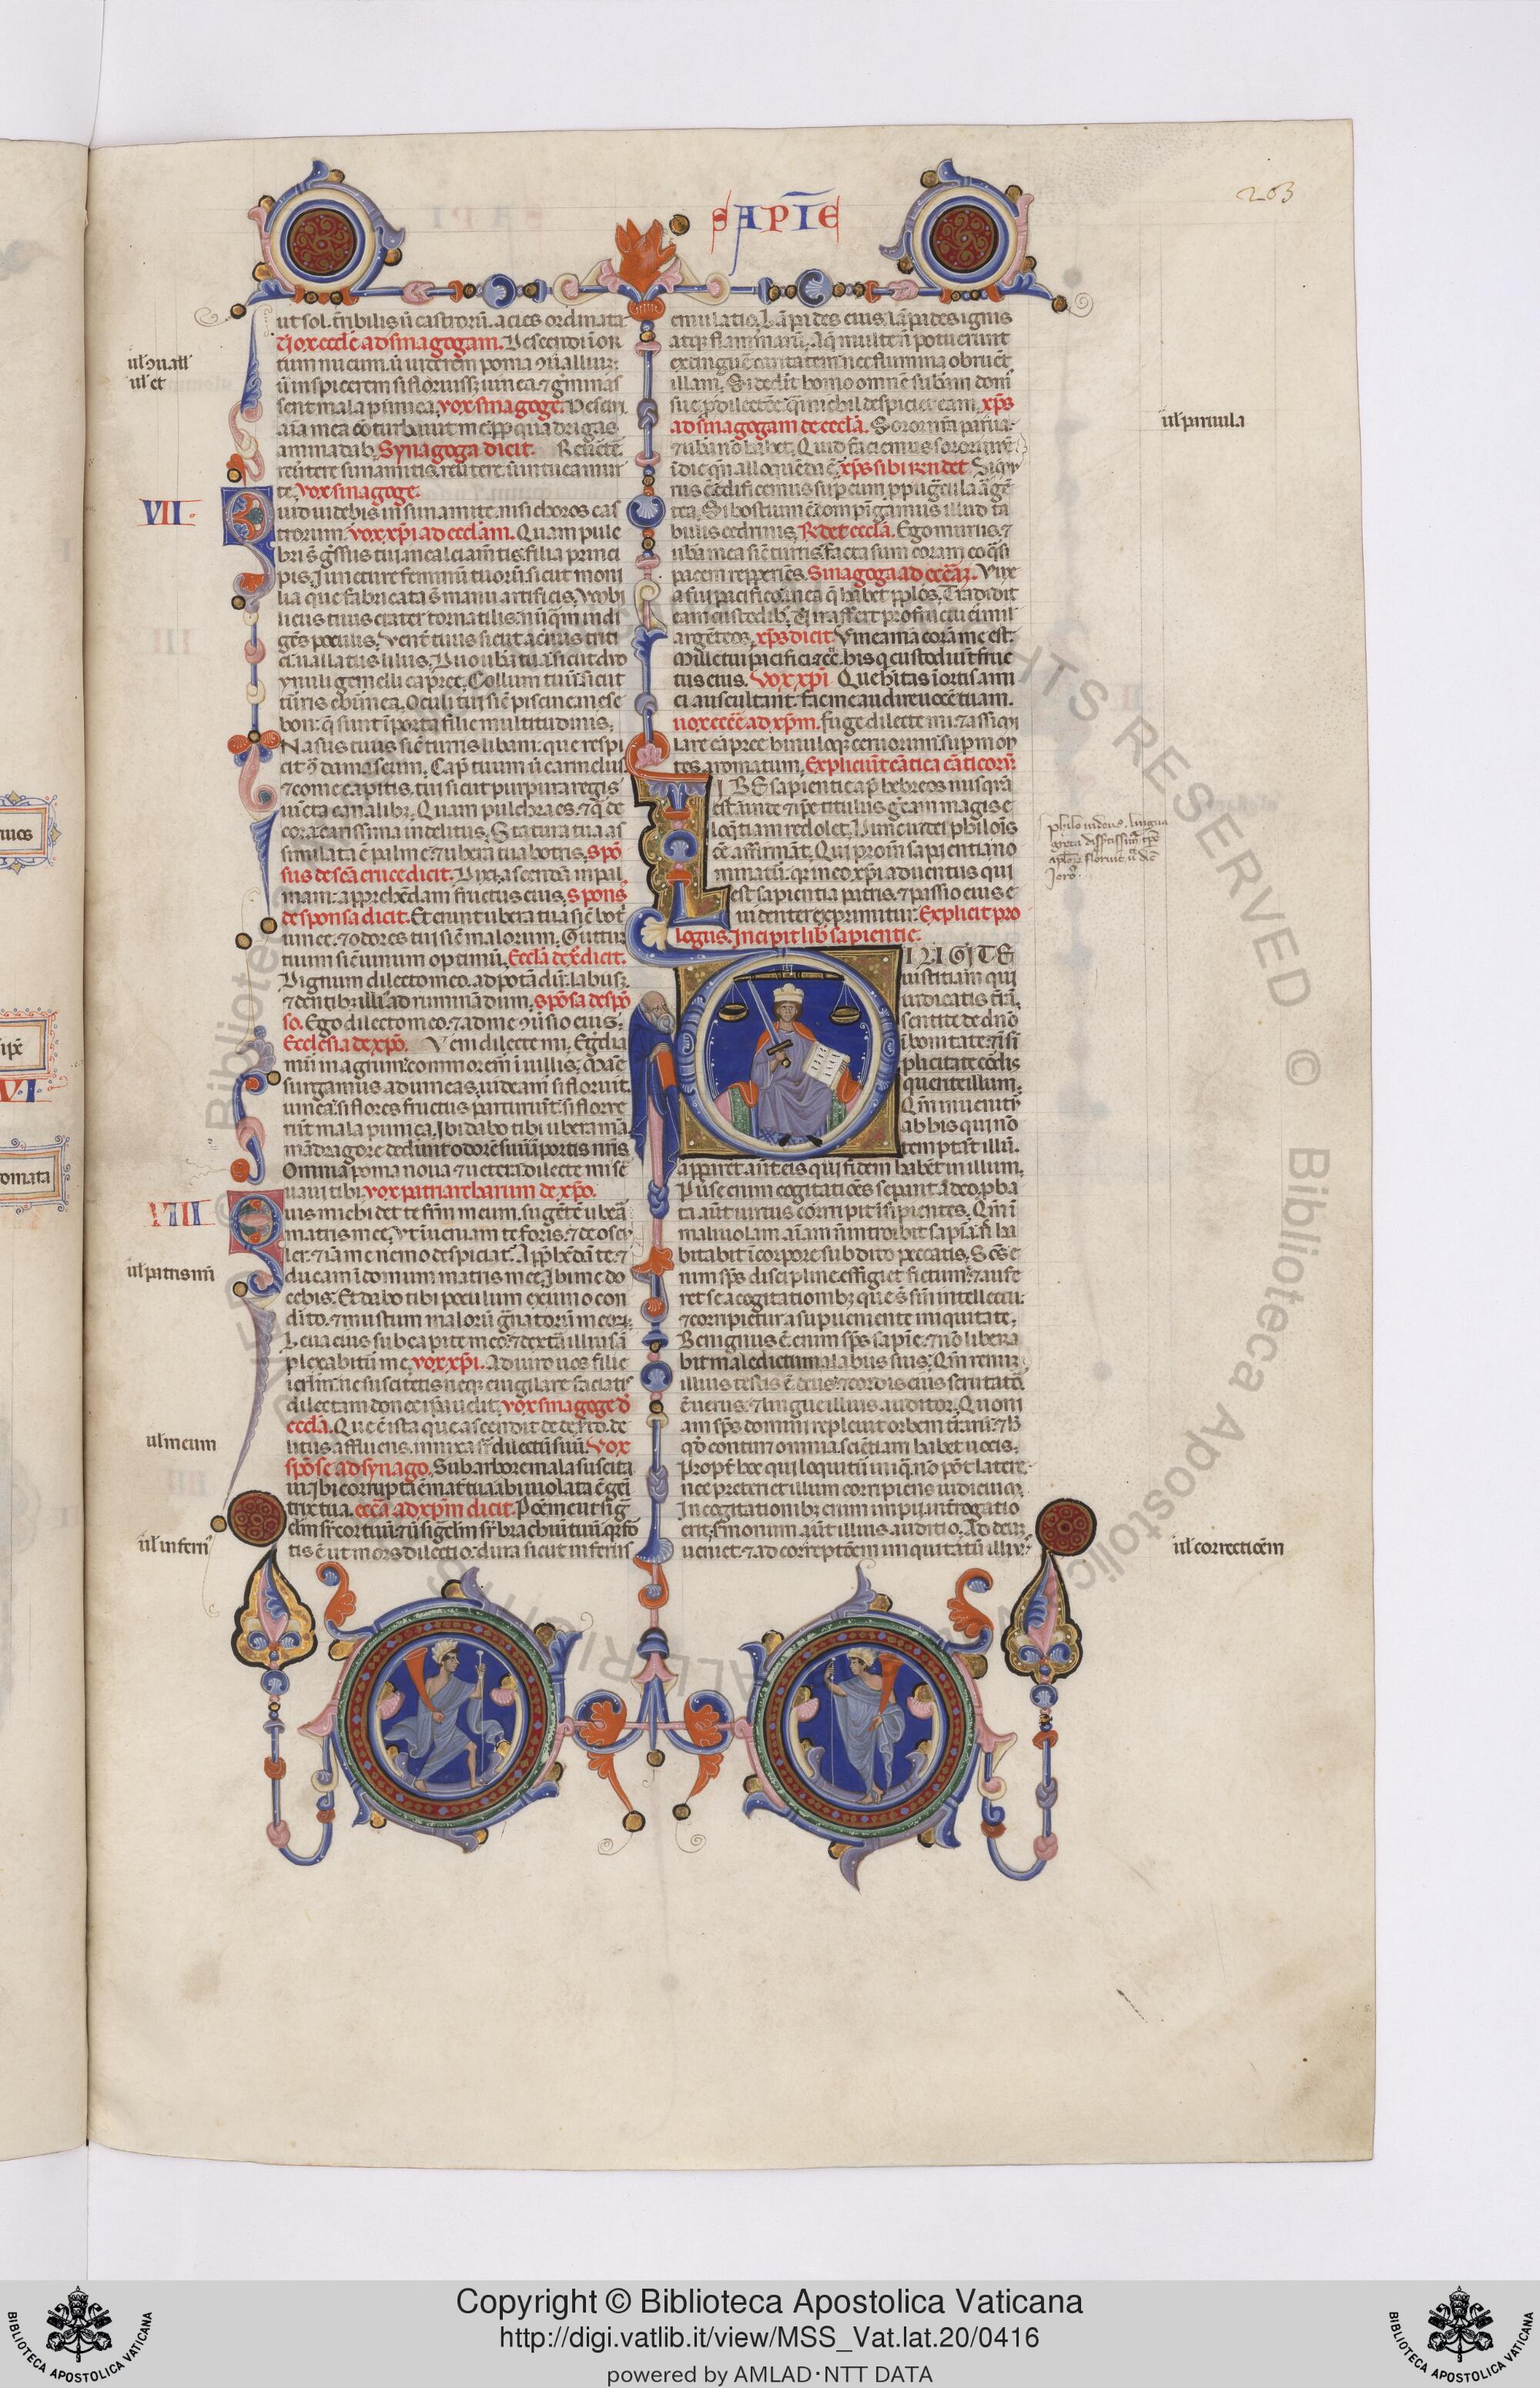 203
SAPIE
ut sol. t̃ribilis ũ castrorũ. acies ordinata
Uox eccl̃e ad sinagogam. Descendi ĩ or
tum nucum. ũ uiderem poma ɔuallium:
ũ inspicerem si floruiss; uinea. ⁊ g̃minas
sent mala punica. vox sinagoge. Nesciui
aĩa mea cõturbauit me ꝓpt̃ quadrigas
aminadab. Synagoga dicit. Reũt̃e
reũtere sunamitis. reũtere ũ intueamur
te. vox sinagoge.
VII
uid uidebis in sunamite. nisi choros cas
trorum. vox xp̃i ad eccl̃am. Quam pulc
hri s̃ g̃ssus tui in calciam̃tis. filia princi
pis. Iuncture feminũ tuorũ. sicut moni
lia que fabricata s̃ manu artificis. Umbi
licus tuus crater tornatilis. nũq̃m indi
gẽs poculis. Uent̃ tuus sicut aceruus triti
ci uallatus liliis. Duo uba tua sicut duo
ynnuli gemelli capree. Collum tuũ sicut
turris eburnea. Oculi tui sic̃ piscine in ese
bon: q̃ sunt ĩ porta filie multitudinis.
Nasus tuus sic̃ turris libani: que respi
cit ɔ̃ damascum. Cap̃ tuum ũ carmelus
⁊ come capitis tui sicut purpura regis
uĩcta canalib;. Quam pulchra es. ⁊ q̃ de
cora carissima in delitiis. Statura tua as
simulata ẽ palme. ⁊ ubera tua botris. Spõ
sus de sc̃a cruce dicit. Dixi. ascendã in pal
mam: apprehẽdam fructus eius. Spons̃
de sponsa dicit. Et erunt ubera tua sic̃ bot̃
uinee. ⁊ odores tui sic̃ malorum. Guttur
tuum sic̃ uinum optimũ. Eccl̃a de x̃ dicit.
Dignum dilecto meo. ad potãdũ. labiisq;
⁊ dentib; illi ad ruminãdum. Spõsa de spõ
so. Ego dilecto meo. ⁊ ad me ɔũsio eius.
Ecclesia de xp̃o. Veni dilecte mi. Eg̃dia
mur in agrum. ɔmoremur ĩ uillis. Mãe
surgamus ad uineas. uideam̃ si floruit
uinea. si flores fructus parturiũt. si florue
rũt mala punica. Ibi dabo tibi ubera mea.
mãdragore dederunt odorẽ suũ ĩ portis nr̃is
Omnia poma noua ⁊ uetera dilecte mi s̃
uaui tibi. vox patriarcharum de xp̃o.
VIII
uis michi det te fr̃m meum. sugẽtẽ ubera
matris mee. Ut ĩueniam te foris. ⁊ deoscu
ler. ⁊ iã me nemo despiciat. Apꝑhẽdã te. ⁊
ducam ĩ domum matris mee. Ibi me do
cebis: Et dabo tibi poculum ex uino con
dito. ⁊ mustum malorũ g̃natorũ meor̃.
Leua eius sub capite meo: ⁊ dext̃a illius ã
plexabitur me. vox xp̃i. Adiuro uos filie
ierl̃m. ne suscitetis neque euigilare faciatis
dilectam donec ip̃a uelit. vox sinagoge d̃
eccl̃a. Que ẽ ista que ascendit de deserto. de
litiis affluens. innixa sr̃ dilectũ suũ. Vox
spõse ad synago. Sub arbore mala suscita
ui. Ibi corrupta ẽ mat̃ tua. ibi uiolata ẽ geni
trix tua. ecc̃a ad xp̃m dicit. Pone me ut sig̃
clm̃ sr̃ cor tuũ. ũ sigc̃lm sr̃ brachiũ tuũ. q̃ for̃
tis ẽ ut mors dilectio: dura sicut infernus
emulatio. Lãpides eius. lãpides ignis
atq; flammarũ. Aq̃ multe ñ potuerunt
extinguẽ caritatem: nec flumina obruẽt
illam. Si dedit̃ homo omnẽ subãm domꝰ
sue ꝓ dilectõe. q̃i nichil despiciet eam. xp̃s
ad sinagogam de eccl̃a. Soror nr̃a parua:
⁊ ubã nõ habet. Quid faciemus sorori nr̃e
ĩ die qñ alloquẽda ẽ. xp̃s sibi rñdet. Si mu
rus ẽ. edificemus sup eum ꝓpug̃cula arg̃e
tea. Si hostium ẽ. compĩgamus illud ta
bulis cedrinis. R̃det eccl̃a. Ego murus. ⁊
ubã mea sic̃ turris. facta sum coram eo q̃si
pacem reperiẽs. Sinagoga ad ecc̃az. Vine
a fuit pacifico. in ea q̃ habet pp̃los. Tradidit
eam custodib;. Uir affert pro fructu ei mil
argẽteos. xp̃s dicit. Vinea mea corã me est.
Mille tui pacifici. ⁊ cc̃. his q̃ custodiũt fruc
tus eius. Vox xp̃i. Que hĩtas ĩ ortis ami
ci auscultant. fac me audire uocẽ tuam.
uox ecc̃e ad xp̃m. fuge dilecte mi. ⁊ assimu
lare capree hinuloq; ceruorum. sup mon
tes aromatum. Expliciũt cãtica cãticorũ.
IBER sapientie ap̃ hebreos nusq̃m
est. unde ⁊ ip̃e titulus grecam magis e
loq̃ntiam redolet. Hunc iudei philõis
ẽe affirmãt. Qui proin̄ sapientia no
minatur. q̃ in eo xp̃i aduentus qui
est sapientia patris. ⁊ passio eius e
uidenter exprimitur. Explicit pro
logus. Incipit lib̃ sapientie.
DILIGITE
iustitiam qui
iudicatis t̃ram.
sentite de dño
ĩ bonitate. ⁊ ĩ si
plicitate cordis
querite illum.
Qm̃ inuenitur
ab his qui nõ
temptãt illũ.
apparet aut̃ eis qui fidem habẽt in illum.
Puerse enim cogitatiões sepant a deo. ꝓba
ta aut̃ uirtus corripit ĩsipientes. Qm̃ ĩ
maliuolam aĩam ñ introibit sapĩa. ñ ha
bitabit ĩ corpore subdito peccatis. Sc̃s e
nim sp̃s discipline effugiet fictum. ⁊ aufe
ret se a cogitationib; que s̃ sñ intellectu:
⁊ corripietur a supueniente iniquitate.
Benignus ẽ enim sp̃s sapĩe. ⁊ nõ libera
bit maledictum a labiis suis. Qm̃ renum
illius testis ẽ deus. ⁊ cordis eius scrutator
ẽ uerus. ⁊ lingue illius auditor. Quoni
am sp̃s domini repleuit orbem t̃rarum. ⁊ h̃
q̃d continet omnia sciẽtiam habet uocis.
Propt̃ hoc qui loquitur iniq̃. nõ põt latere.
nec preteriet illum corripiens iudicium.
In cogitationib; enim impii int̃rogatio
erit. s̃monum aut̃ illius auditio. Ad deum
ueniet. ⁊ ad correptõem iniquitatũ illiꝰ.
ul̃ ɔuall̃
ul̃ et
ul̃ paruula
ul̃ patris mi
ul̃ meum
ul̃ inferni
ul̃ correctiõem
Copyright © Biblioteca Apostolica Vaticana
http://digi.vatlib.it/view/MSS_Vat.lat.20/0416
powered by AMLAD·NTT DATA
BIBLIOTECA APOSTOLICA VATICANA
BIBLIOTECA APOSTOLICA VATICANA